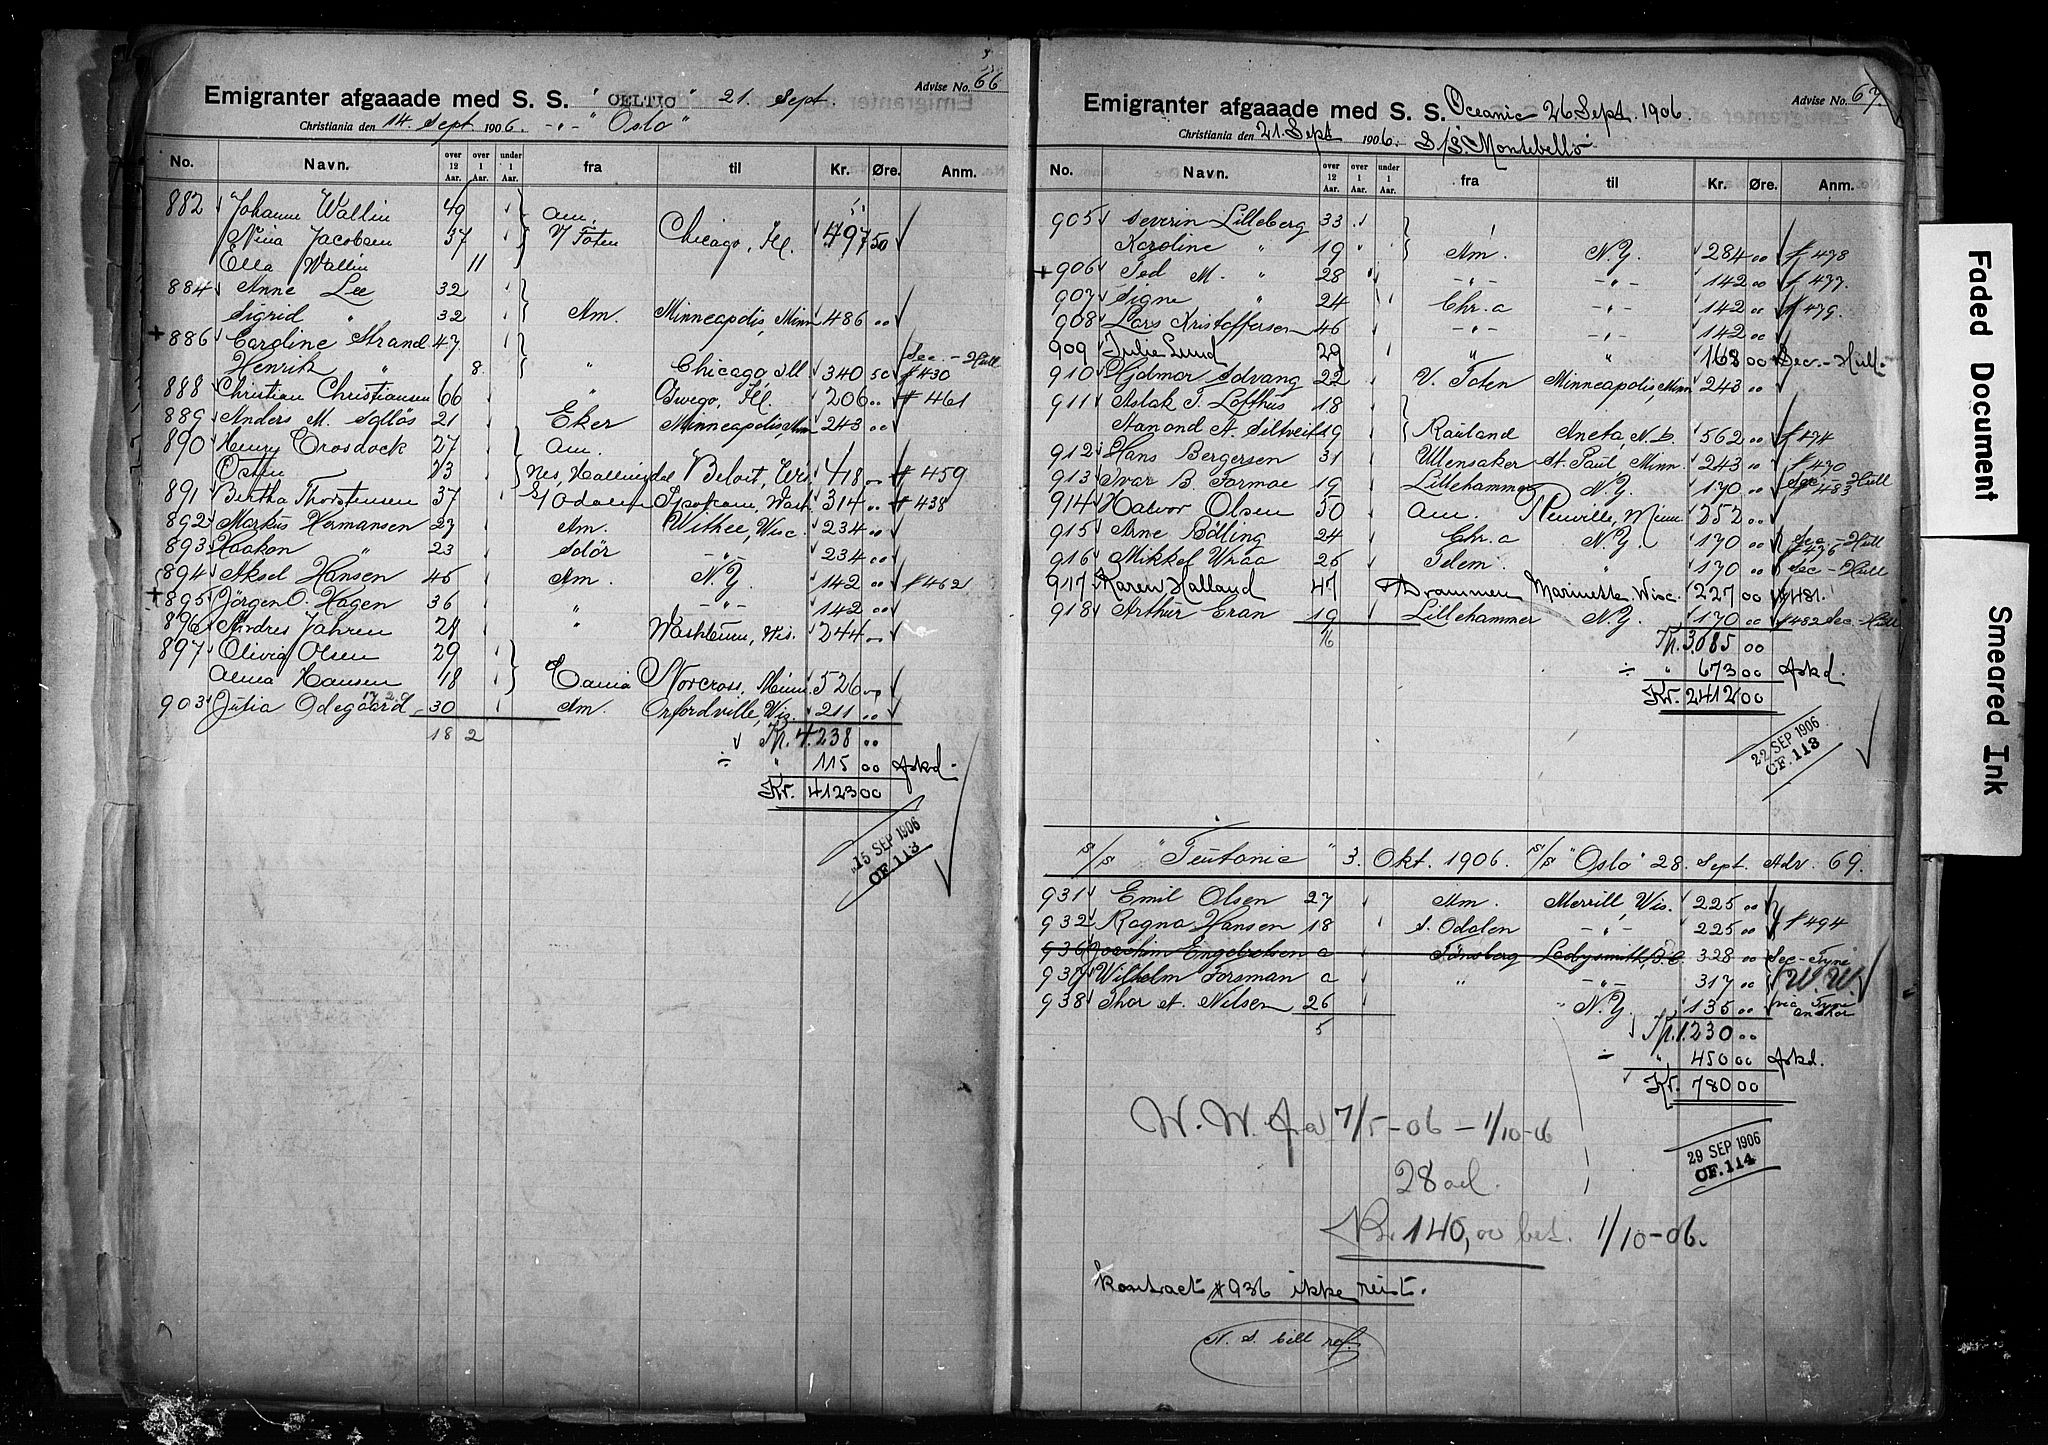 Advise No. 66
Emigranter afgaaade med S. S. "CELTIC" 21. Sept.
Christiania den 14. Sept. 1906. -"- "Oslo"
No. Navn. over 12 Aar. over 1 Aar. under 1 Aar. fra til Kr. Øre. Anm.
882 Johanne Wallin 49 Am.
Nina Jacobsen 37 V Toten Chicago, Ill. 497 50
Ella Wallin 11
884 Anne Lee 32
Sigrid " 32 Am. Minneapolis, Minn 486 00
+ 886 Caroline Strand 47
Henrik " 8 " Chicago Ill 340 50 Sec. - Hull # 430
888 Christian Christiansen 66 " Oswego, Ill. 206 00 # 461
889 Anders M. 21 Eker Minneapolis, Minn 243 00
890 Henry Crosdock 27 Am.
Østen 73 Nes, Hallingdal Beloit, Wis. 418 00 # 459
891 Bertha Thorstensen 37 Odalen Spokane, Wash 314 00 # 438
892 Markus Hermansen 27 Am. Withee, Wisc. 234 00
893 Haakon " 23 Solør -"- 234 00
894 Aksel Hansen 45 Am. N.Y. 142 00 # 462
+ 895 Jörgen O. Hagen 36 " -"- 142 00
896 Andres Jahren 21 " Wis. 244 00
897 Olivia Olsen 29
Alma Hansen 18 Norcross, Minn. 526 00
903 Julia Odegaard 30 Am. Orfordville, Wis. 211 00
18 2 Tp. 4.238 00
÷ " 115 00 Askd.
Kr. 4123 00
15 SEP 1906
CF. 113
Advise No. 67.
Emigranter afgaaade med S. S. Oceanic 26 Sept. 1906.
Christiania den 21. Sept 1906. S/S. Montebello
No. Navn. over 12 Aar. over 1 Aar. under 1 Aar. fra til Kr. Øre. Anm.
905 Severin Lilleberg 33
Karoline " 19 Am. N.Y. 284 00 # 478
+ 906 Ted M. " 28 -"- -"- 142 00 # 477.
907 Signe " 24 Chr.a -"- 142 00 # 479.
908 Lars Kristoffersen 46 -"- -"- 142 00
909 Julie Lund 29 " " 168 00 Sec. - Hull.
910 Hjalmar Advang 22 V. Toten Minneapolis, Minn 243 00
911 Aslak T. Lofthus 18
Aanond A. 19 Rauland Aneta, N.D. 562 00 # 474
912 Hans Bergersen 31 Ullensaker St. Paul, Minn. 243 00 # 470
913 Ivar B. Formoe 19 Lillehammer N.Y. 170 00 Sec - Hull # 483
914 Halvor Olsen 50 Am. Minn 252 00
915 Arne Bölling 24 Chr.a N.Y. 170 00 Sec. - Hull # 476
916 Mikkel Wraa 25 Telem. " 170 00 Sec - Hull
917 Karen Halland 47 Drammen Marinette Wisc. 227 00 # 481.
918 Arthur Eran 19 Lillehammer N.Y. 170 00 # 482 Sec - Hull
16 Tp. 3.085 00
÷ " 673 00 Askd.
Kr. 2412 00
22 SEP 1906
CF. 113
S/S "Teutonic" 3. Okt. 1906. S/S "Oslo" 28. Sept. Adv. 69.
931 Emil Olsen 27 Am. Merrill, Wis. 225 00
932 Ragna Hansen 18 S. Odalen -"- 225 00 # 494
936 Joachim Engebretsen a Tönsberg Ladysmith, B.C. 328 00 Sec - Tyne
937 Wilhelm Foreman a " -"- 317 00 W. W.
938 Thor A. Nilsen 26 " N.Y. 135 00 via Tyne Anchor
5 Tp. 1.230 00
÷ " 450 00 Askd.
Kr. 780 00
29 SEP 1906
CF. 114
W. W. fra 7/5-06 - 1/10-06
28 ad.
Kr. 140,00 bet. 1/10-06.
Kontract # 936 ikke reist.
N. S. bill ref.
Faded Document
Smeared Ink